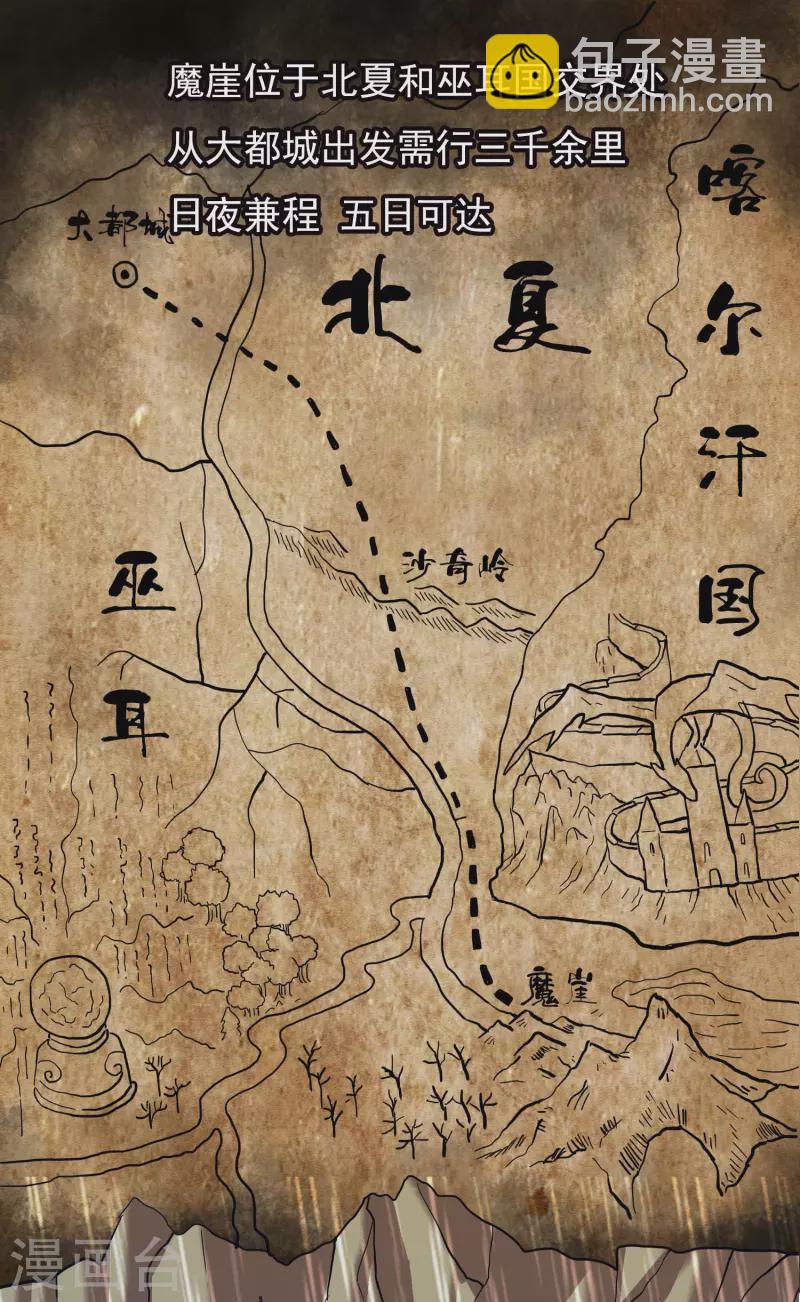 魔崖位于北夏和巫耳国交界处
从大都城出发需行三千余里
日夜兼程 五日可达
包子漫畫
baozimh.com
大都城
北夏
喀尔汗国
沙奇岭
巫耳
魔崖
漫画台